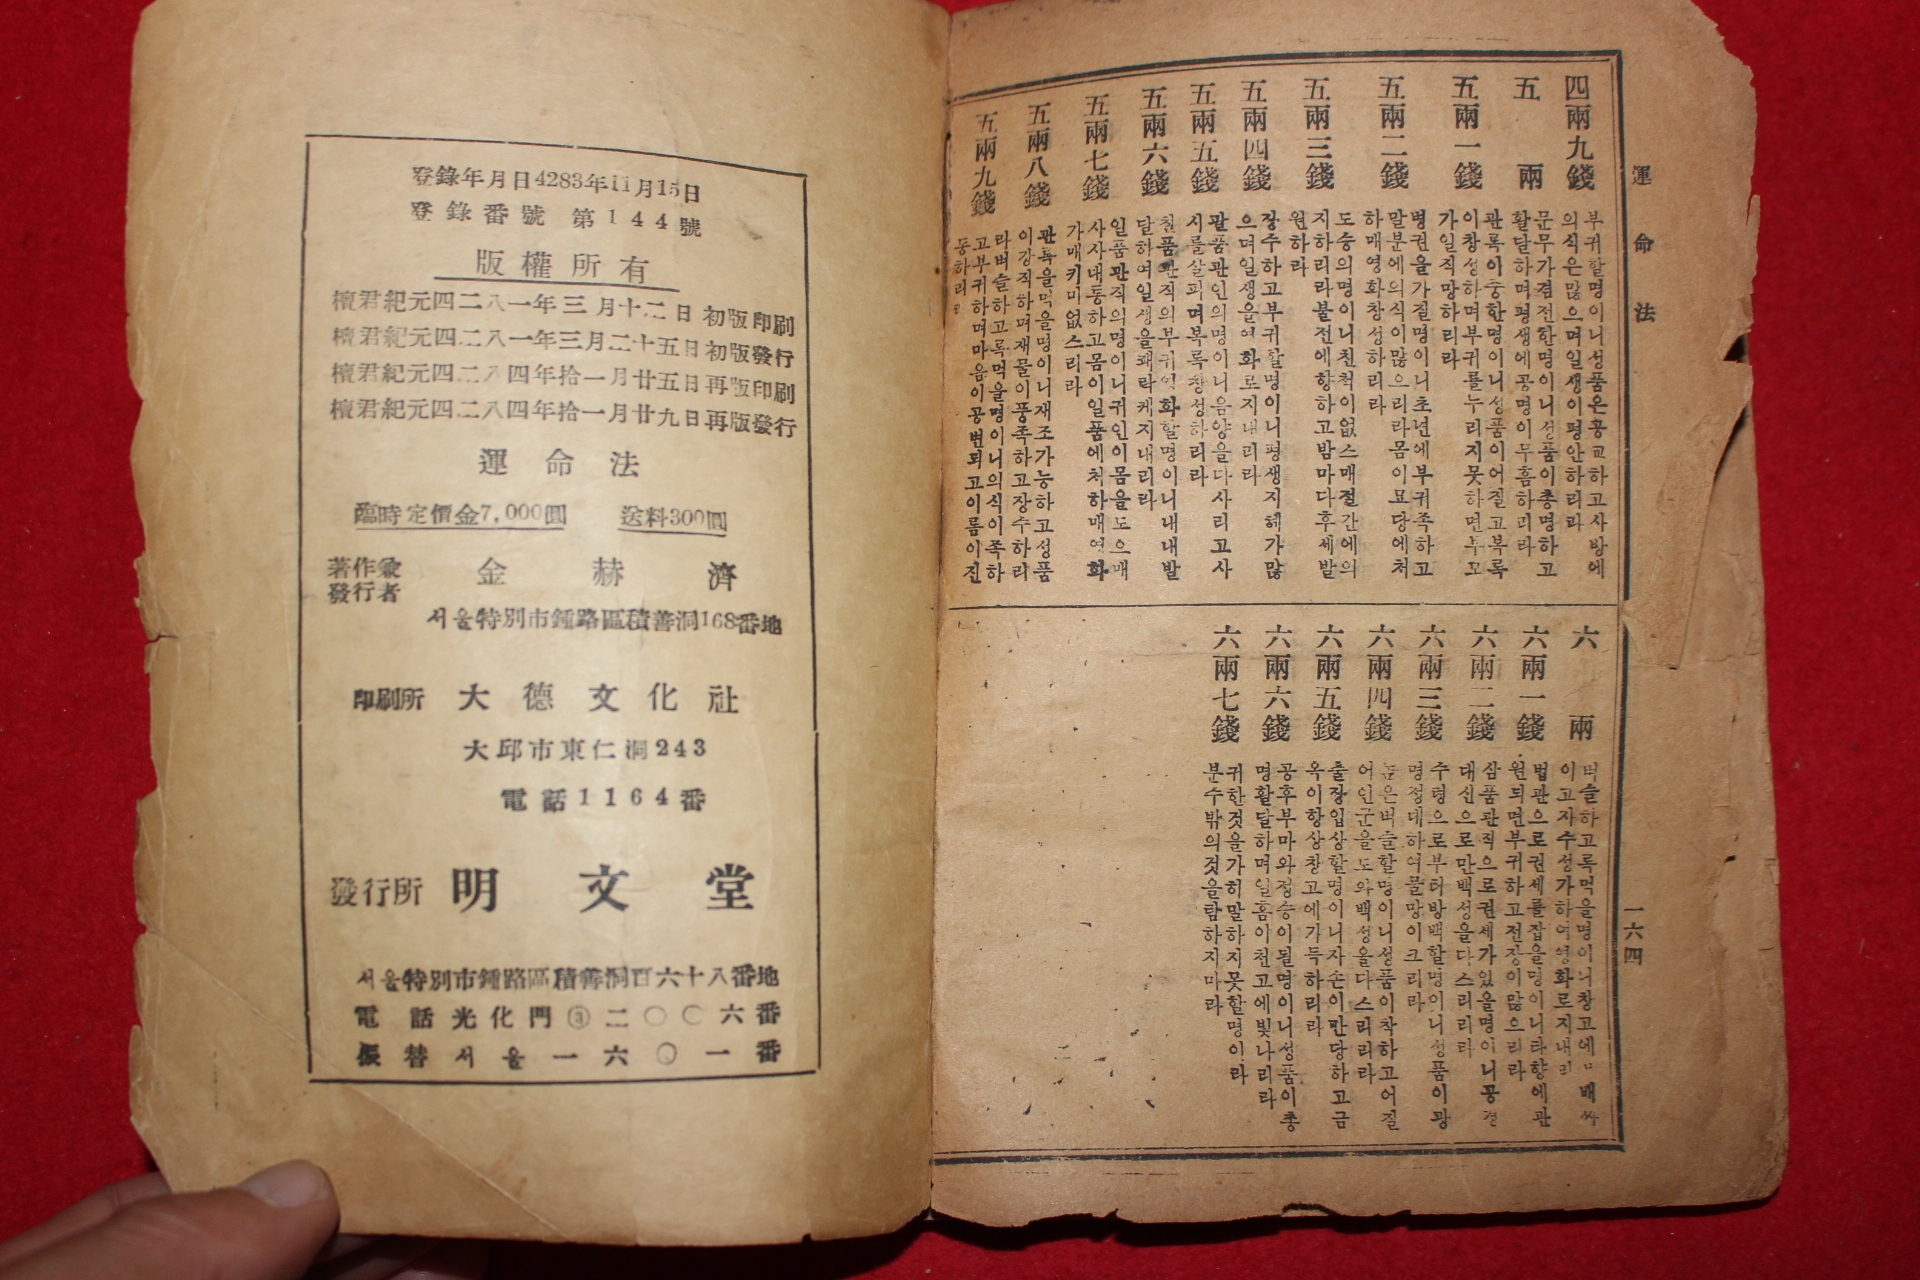 運命法
四兩九錢
부귀할명이니성품은공교하고사방에
의식은많으며일생이평안하리라
五兩
문무가겸전한명이니성품이총명하고
활달하며평생에공명이무흠하리라
五兩一錢
관록이중한명이니성품이어질고복록
이창성하며부귀를누리지못하면부모
가일직망하리라
五兩二錢
병권을가질명이니초년에부귀족하고
말분에의식이많으리라몸이묘당에처
하매영화창성하리라
五兩三錢
도승의명이니친척이없스매절간에의
지하리라불전에향하고밤마다후세발
원하라
五兩四錢
장수하고부귀할명이니평생지혜가많
으며일생을영화로지내리라
五兩五錢
팔품관인의명이니음양을다사리고사
시를살피며복록창성하리라
五兩六錢
칠품관직의부귀영화할명이니내내발
달하여일생을쾌락케지내리라
五兩七錢
일품관직의명이니귀인이몸을도으매
사사대통하고몸이일품에처하매영화
가매키미없스리라
五兩八錢
관록을먹을명이니재조가능하고성품
이강직하며재물이풍족하고장수하리
五兩九錢
라벼슬하고록먹을명이니의식이족하
고부귀하며마음이공변되고이름이진
동하리라
六兩
벼슬하고록먹을명이니창고에 매싸
이고자수성가하여영화로지내리
六兩一錢
법관으로권세를잡을명이니타향에관
원되면부귀하고전장이많으리라
六兩二錢
삼품관직으로권세가있을명이니공경
대신으로만백성을다스리리라
六兩三錢
수령으로부터방백할명이니성품이광
명정대하여물망이크리라
六兩四錢
높은벼슬할명이니성품이착하고어질
어인군을도와백성을다스리리라
六兩五錢
출장입상할명이니자손이만당하고금
옥이항상창고에가득하리라
六兩六錢
공후부마와정승이될명이니성품이총
명활달하며일홈이천고에빛나리라
六兩七錢
귀한것을가히말하지못할명이라
분수밖의것을탐하지마라
一六四
登錄年月日4283年11月15日
登錄番號 第144號
版權所有
檀君紀元四二八一年三月十二日初版印刷
檀君紀元四二八一年三月二十五日初版發行
檀君紀元四二八四年拾一月廿五日再版印刷
檀君紀元四二八四年拾一月廿九日再版發行
運命法
臨時定價金7,000圓 送料300圓
著作兼
發行者 金赫濟
서울特別市鍾路區積善洞168番地
印刷所 大德文化社
大邱市東仁洞243
電話1164番
發行所 明文堂
서울特別市鍾路區積善洞百六十八番地
電話光化門③二〇〇六番
振替서울一六〇一番